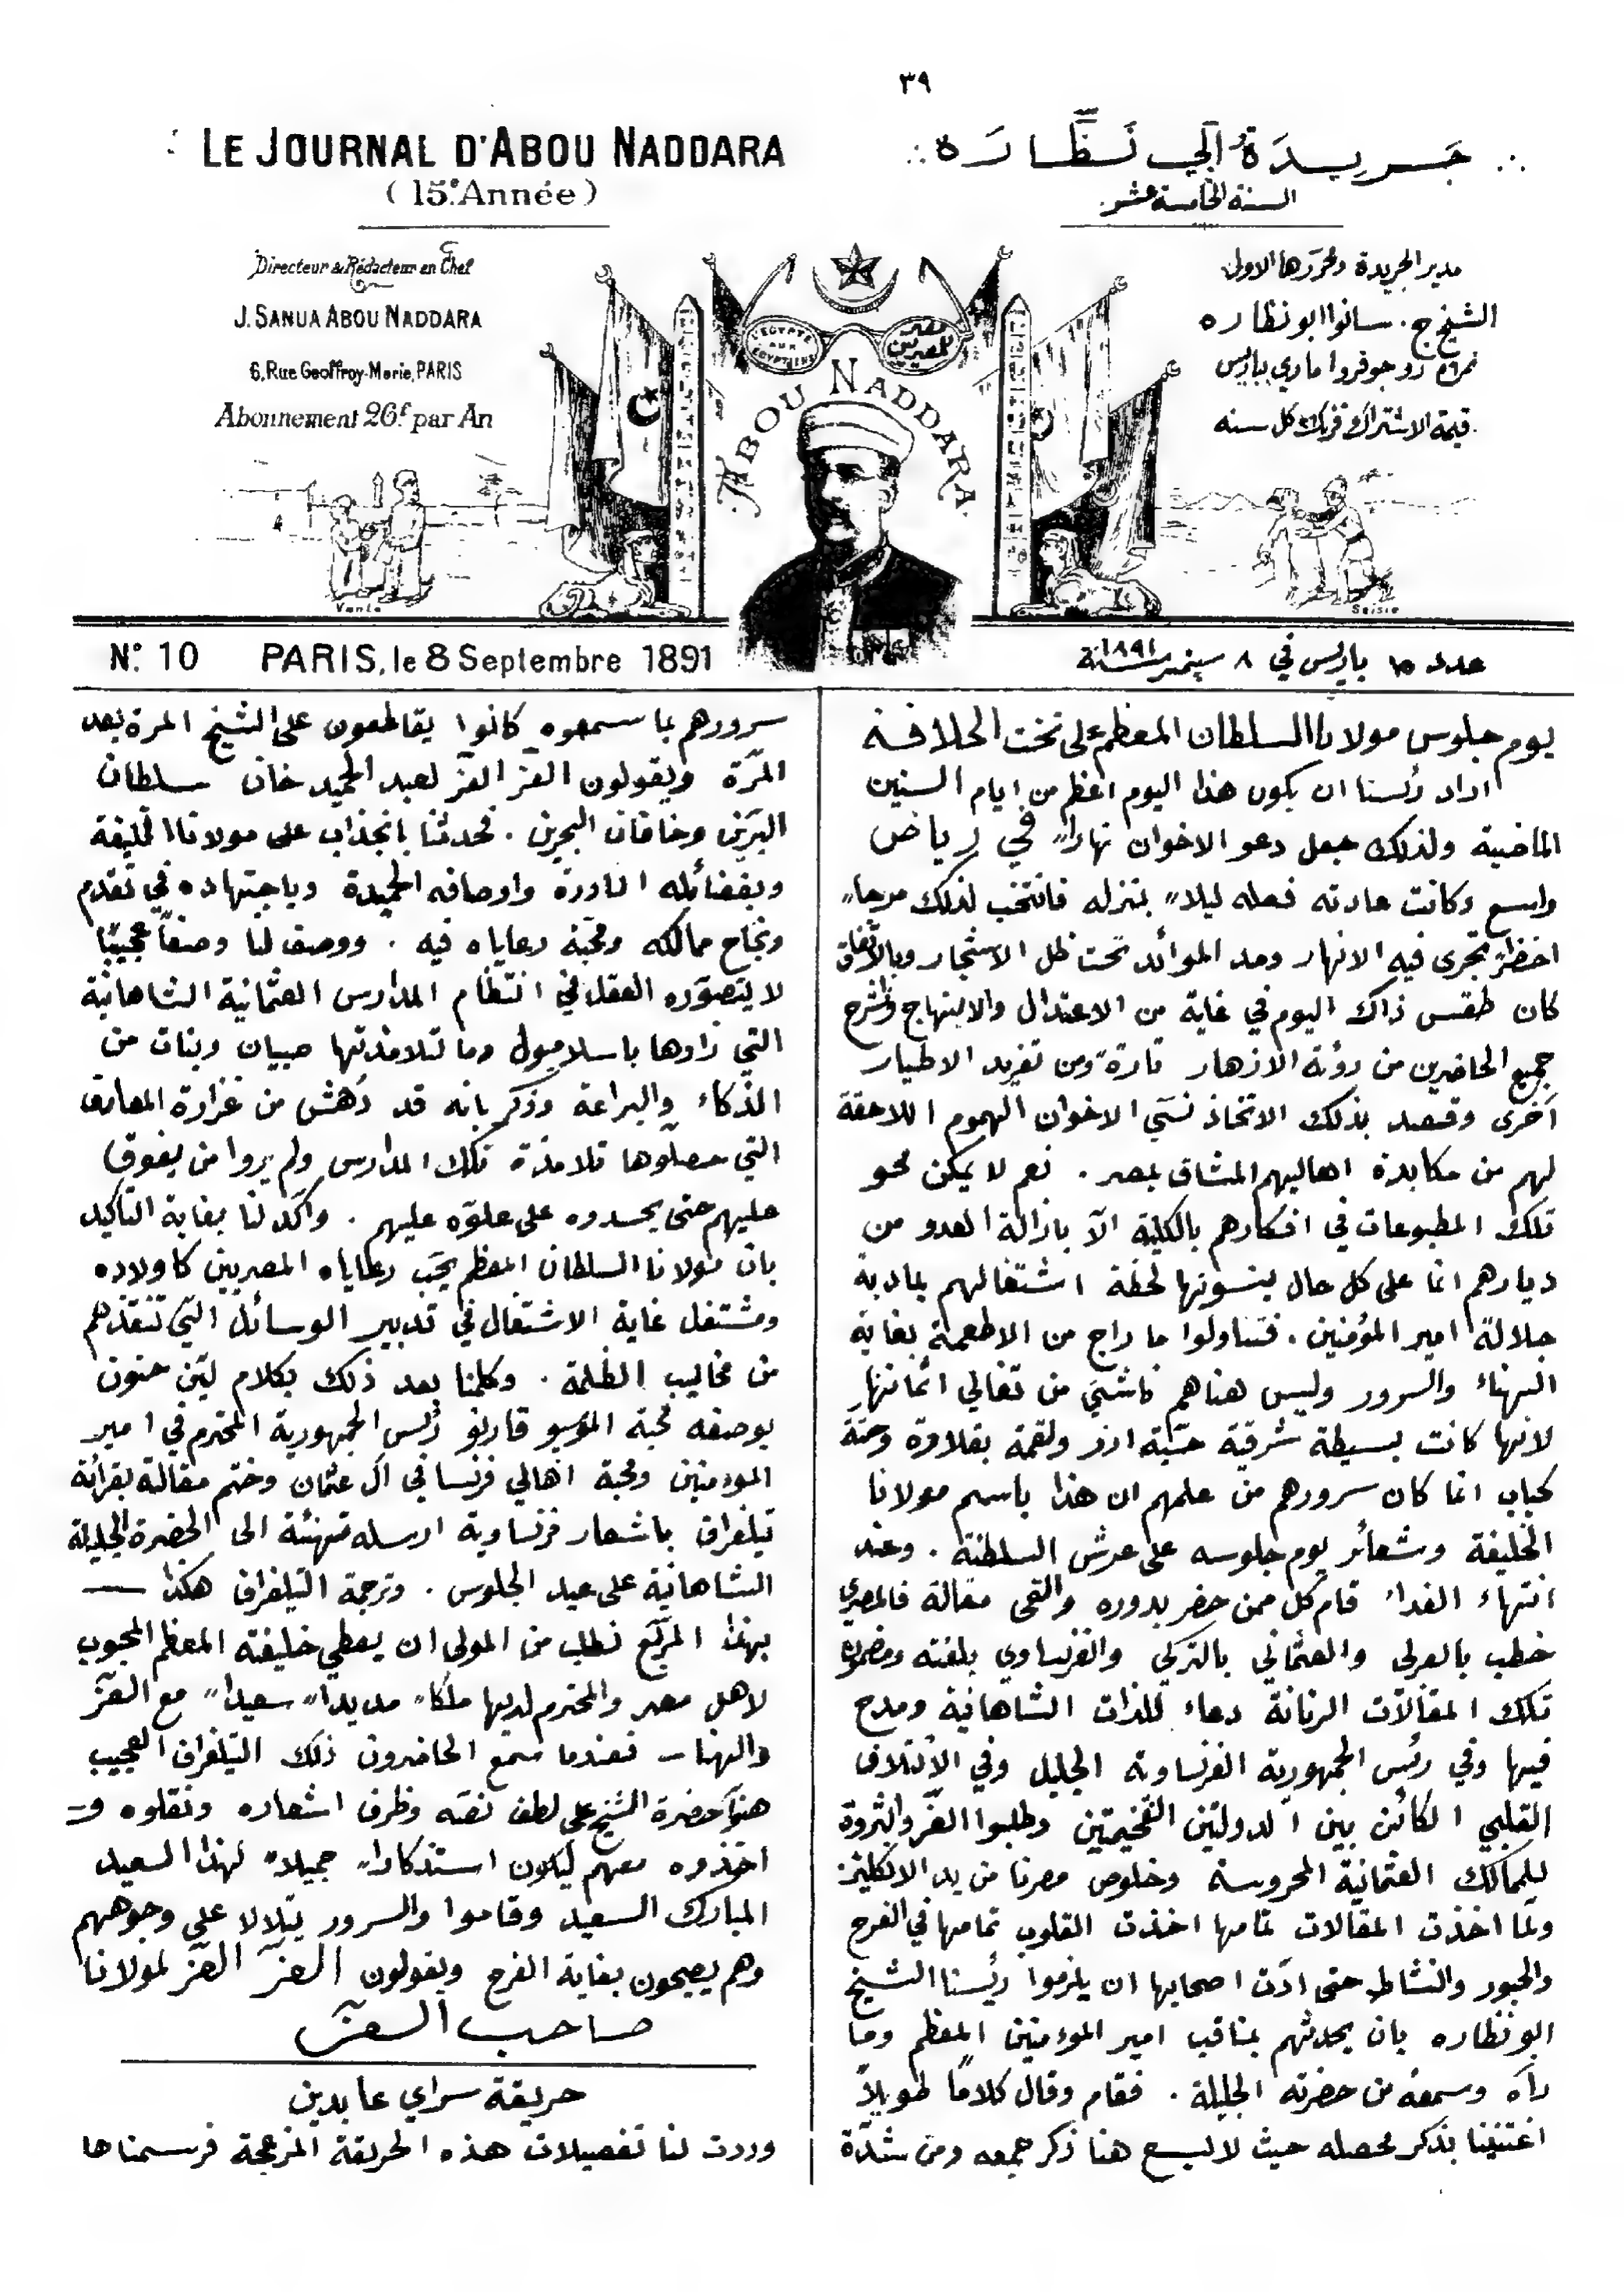 ٣٩
LE JOURNAL D'ABOU NADDARA
(15.e Année)
جَرِيدَةُ أَبِي نَظَّارَه
السنة الخامسة عشر
Directeur & Rédacteur en Chef
J. SANUA ABOU NADDARA
6, Rue Geoffroy-Marie, PARIS
Abonnement 26f. par An
مدير الجريدة ومحررها الاول
الشيخ ج. سانوا ابو نظاره
نمرة ٦ رو جوفروا ماري بباريس
قيمة الاشتراك ٢٦ فرنك كل سنه
L'EGYPTE AUX EGYPTIENS
مصر للمصريين
ABOU NADDARA
Vente
Saisie
No. 10 PARIS, le 8 Septembre 1891
عدد ١٠ باريس في ٨ سپتمبر سنة ١٨٩١
يوم جلوس مولانا السلطان المعظم على تخت الخلافة
اراد رئسنا ان يكون هذا اليوم اعظم من ايام السنين
الماضية ولذلك جعل دعو الاخوان نهاراً في رياض
واسع وكانت عادته فعله ليلاً بمنزله فانتخب لذلك مرجاً
اخضرَ تجرى فيه الانهار ومد الموائد تحت ظل الاشجار وبالاتفاق
كان طقس ذاك اليوم في غاية من الاعتدال والابتهاج وانشرح
جميع الحاضرين من رؤية الازهار تارة ومن تغريد الاطيار
اخرى وقصد بذلك الاتخاذ نسَي الاخوان الهموم اللاحقة
لهم من مكابدة اهاليهم المشاق بمصر. نعم لا يمكن محو
تلك المطبوعات في افكارهم بالكلية الّا بازالة العدو من
ديارهم انما على كل حال ينسونها لحظة اشتغالهم بمادبة
جلالة امير المؤمنين. فتناولوا ما راج من الاطعمة بغاية
الهناء والسرور وليس هناهم ناشئ من تغالي اثمانها
لانها كانت بسيطة شرقية حبّة ارز ولقمة بقلاوة وحتة
كباب انما كان سرورهم من علمهم ان هذا باسم مولانا
الخليفة وشعائر يوم جلوسه على عرش السلطنة. وعند
انتهاء الغداء قام كل ممن حضر بدوره والقى مقالة فالمصري
خطب بالعربي والعثماني بالتركي والفرنساوي بلغته ومضمون
تلك المقالات الرنانة دعاء للذات الشاهانية ومدح
فيها وفي رئس الجمهورية الفرنساوية الجليل وفي الائتلاف
القلبي الكائن بين الدولتين الفخيمتين وطلبوا العزّ والثروة
للممالك العثمانية المحروسة وخلوص مصرنا من يد الانكليز
ولما اخذت المقالات تمامها اخذت القلوب تمامها في الفرح
والحبور والنشاط حتى ادّت اصحابها ان يلزموا رئيسنا الشيخ
ابو نظاره بان يحدثهم بمناقب امير المؤمنين المعظم وما
رآه وسمعه من حضرته الجليلة. فقام وقال كلاماً طويلاً
اغتنينا بذكر محصله حيث لا يسع هنا ذكر جميعه ومن شدّة
سرورهم بما سمعوه كانوا يقاطعون على الشيخ المرة بعد
المرّة ويقولون العزّ العزّ لعبد الحميد خان سلطان
البرّين وخاقان البحرين. فحدثنا بانجذاب على مولانا الخليفة
وبفضائله النادرة واوصافه الحميدة وباجتهاده في تقدم
ونجاح ممالكه ومحبة رعاياه فيه. ووصف لنا وصفاً عجيبًا
لا يتصوّره العقل في انتظام المدارس العثمانية الشاهانية
التي زارها باسلامبول وما لتلامذتها صبيان وبنات من
الذكاء والبراعة وذكر بانه قد دُهش من غزارة المعارف
التي حصلوها تلامذة تلك المدارس ولم يروا من يفوق
عليهم حتى يحسدوه على علوّه عليهم. واكّد لنا بغاية التاكيد
بان مولانا السلطان المعظم يحبّ رعاياه المصريين كاولاده
ومشتغل غاية الاشتغال في تدبير الوسائل التي تنقذهم
من مخاليب الظلمة. وكلمنا بعد ذلك بكلام ليّن حنون
بوصفه محبة الموسيو قارنو رئس الجمهورية المحترم في امير
المؤمنين ومحبة اهالي فرنسا في آل عثمان وختم مقالته بقرائة
تيلغراف باشعار فرنساوية ارسله تهنئة الى الحضرة الجليلة
الشاهانية على عيد الجلوس. وترجمة التيلغراف هكذا —
بهذا المربّع نطلب من المولى ان يعطي خليفته المعظم المحبوب
لاهل مصر والمحترم لديها ملكاً مديداً سعيداً مع العزّ
والهناء — فعندما سمع الحاضرون ذلك التيلغراف العجيب
هنوا حضرة الشيخ على لطف نفَسه وظرف اشعاره ونقلوه و
اخذوه معهم ليكون استذكاراً جميلاً لهذا السعيد
المبارك السعيد وقاموا والسرور يتلالا على وجوههم
وهم يصيحون بغاية الفرح ويقولون العزّ العزّ لمولانا
صاحب العزّ
حريقة سراي عابدين
وردت لنا تفصيلات هذه الحريقة المزعجة فرسمناها